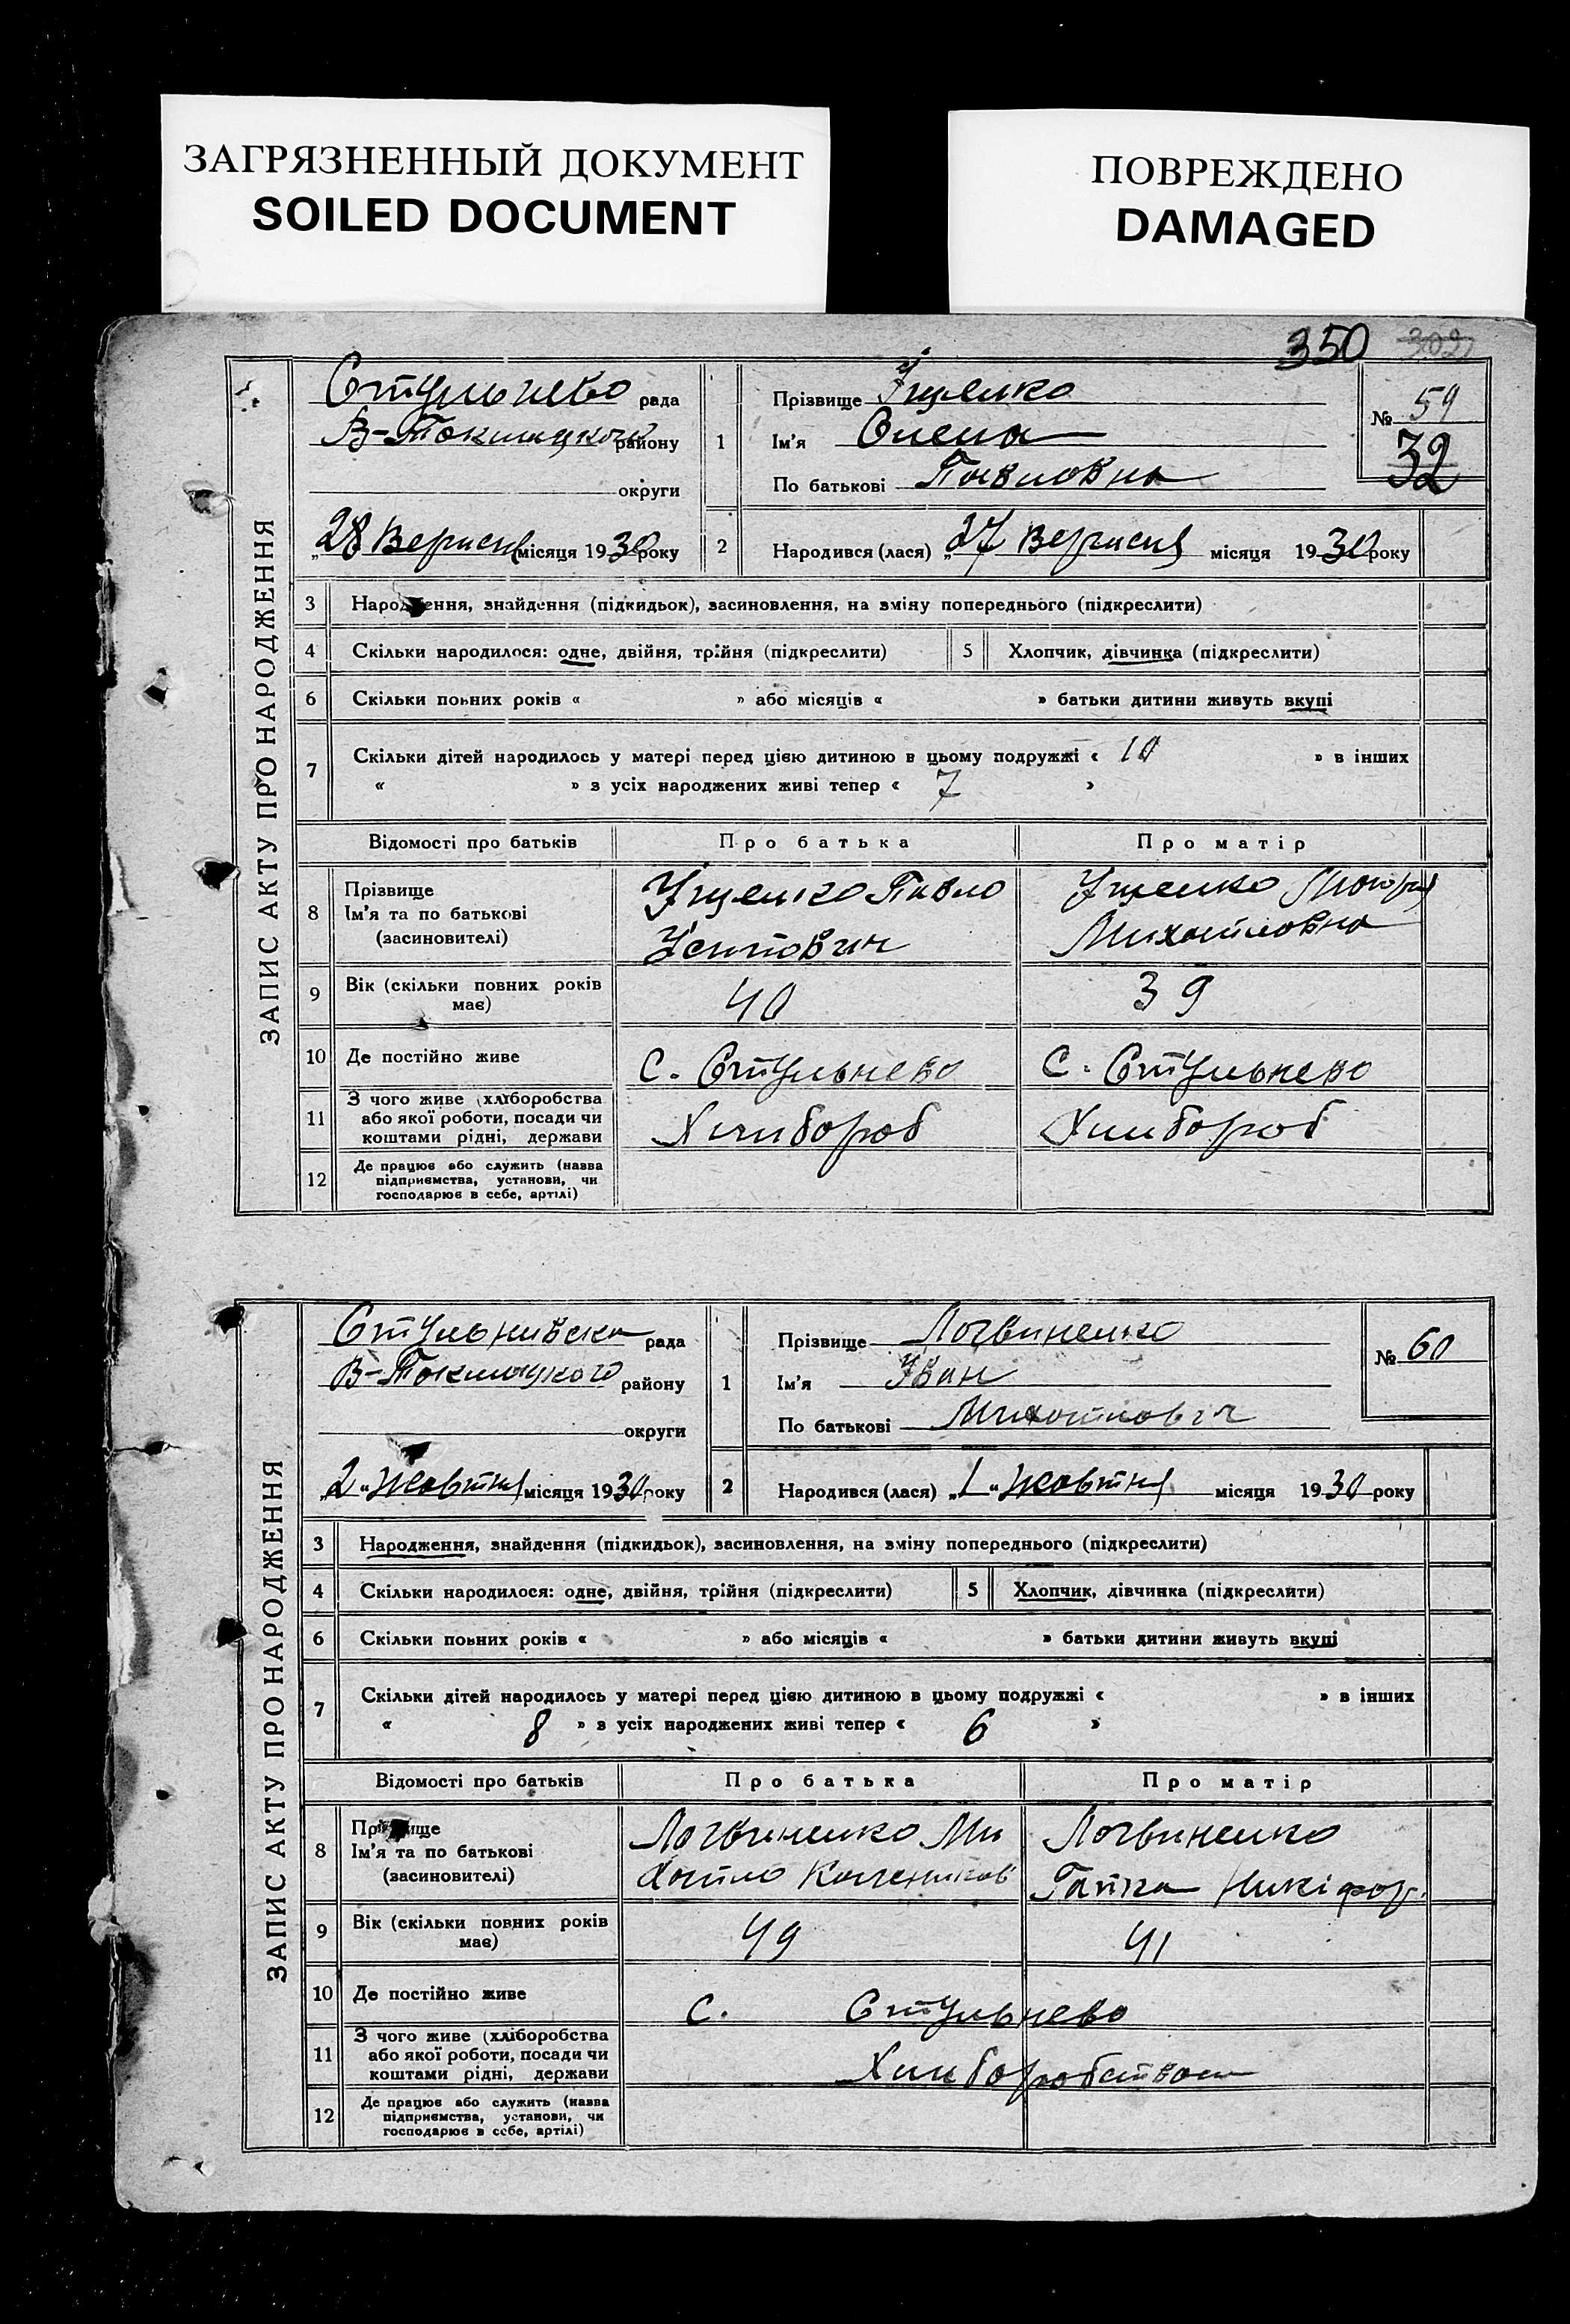 ЗАГРЯЗНЕННЫЙ ДОКУМЕНТ
SOILED DOCUMENT
ПОВРЕЖДЕНО
DAMAGED
350 302
ЗАПИС АКТУ ПРО НАРОДЖЕННЯ
Стульнево рада
В-Токмацкого району
округи
„28 Вересня місяця 1930 року
1 Прізвище Ущенко
Ім'я Олена
По батькові Павловна
№ 59
32
2 Народився (лася) „27 Вересня місяця 1930 року
3 Народження, знайдення (підкидьок), засиновлення, на зміну попереднього (підкреслити)
4 Скільки народилося: одне, двійня, трійня (підкреслити) 5 Хлопчик, дівчинка (підкреслити)
6 Скільки повних років « » або місяців « » батьки дитини живуть вкупі
7 Скільки дітей народилось у матері перед цією дитиною в цьому подружжі « 10 » в інших
« » з усіх народжених живі тепер « 7 »
Відомості про батьків Про батька Про матір
8 Прізвище
Ім'я та по батькові
(засновителі)
Ущенко Павло
Ущенко
Михайловна
9 Вік (скільки повних років має) 40 39
10 Де постійно живе С. Стульнево С. Стульнево
11 З чого живе (хліборобства
або якої роботи, посади чи
коштами рідні, держави
Хлибороб Хлибороб
12 Де працює або служить (назва
підприємства, установи, чи
господарює в себе, артілі)
ЗАПИС АКТУ ПРО НАРОДЖЕННЯ
Стульнивска рада
В-Токмацкого району
округи
„2" Жовтня місяця 1930 року
1 Прізвище Логвиненко
Ім'я Іван
По батькові Михайлович
№ 60
2 Народився (лася) „1" Жовтня місяця 1930 року
3 Народження, знайдення (підкидьок), засиновлення, на зміну попереднього (підкреслити)
4 Скільки народилося: одне, двійня, трійня (підкреслити) 5 Хлопчик, дівчинка (підкреслити)
6 Скільки повних років « » або місяців « » батьки дитини живуть вкупі
7 Скільки дітей народилось у матері перед цією дитиною в цьому подружжі « » в інших
« 8 » з усіх народжених живі тепер « 6 »
Відомості про батьків Про батька Про матір
8 Прізвище
Ім'я та по батькові
(засиновителі)
Логвиненко Ми
хайло
Логвиненко
Гапка Никіфор.
9 Вік (скільки повних років має) 49 41
10 Де постійно живе С. Стульнево
11 З чого живе (хліборобства
або якої роботи, посади чи
коштами рідні, держави
Хлиборобством
12 Де працює або служить (назва
підприємства, установи, чи
господарює в себе, артілі)